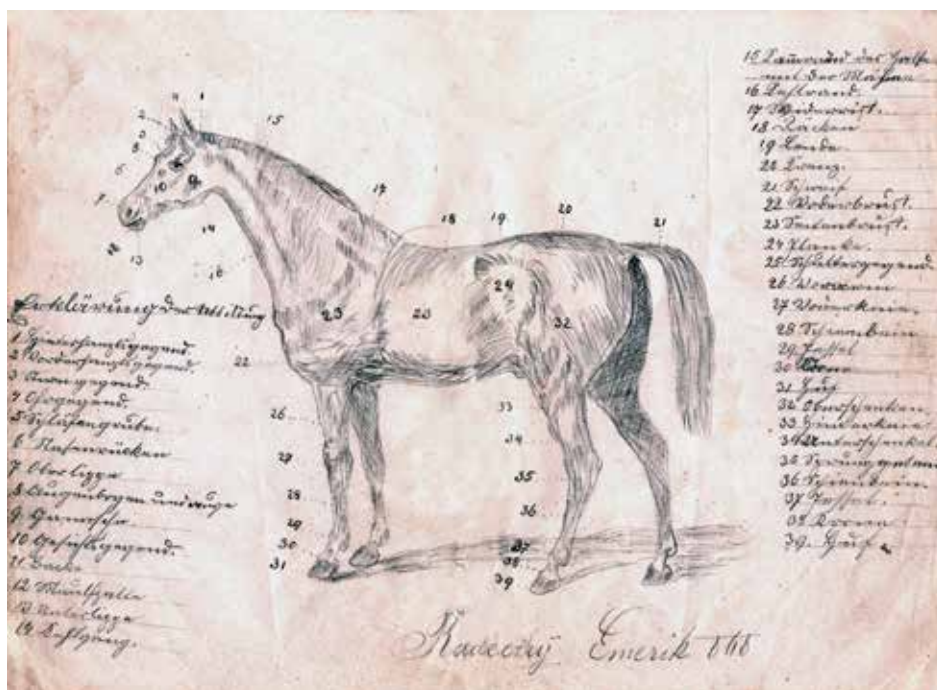 4 1 15
2
3
8
5
6
10 9
7
12
13
14
16
17
18
19
20
21
24
23 23 32
22
26 33
27 34
35
28 36
29 37
30 38
31 39
Erklärung der Abbildung
1 Hinterhauptgegend.
2 Vorderhauptgegend.
3 Stirngegend.
4 Ohrgegend.
5 Schläfengrube.
6 Nasenrücken
7 Oberlippe
8 Augenbogen und auge
9. Ganasche
10 Gesichtsgegend.
11 Backe
12 Maulspalte
13 Unterlippe
14 Kehlgang.
15 Kammrand des Halses
mit der Mähne
16 Kehlrand.
17 Widerrist.
18 Rücken
19 Lende.
20 Kreuz.
21 Schweif
22 Vorderbrust.
23 Seitenbrust.
24 Flanke.
25 Schultergegend.
26 Vorarm
27 Vorderknie.
28 Schienbein
29. Fessel
30 Krone
31 Huf
32 Oberschenkel
33 Hinterknie
34 Unterschenkel
35 Sprunggelenk
36 Schienbein
37 Fessel.
38 Krone
39. Huf
Emerik